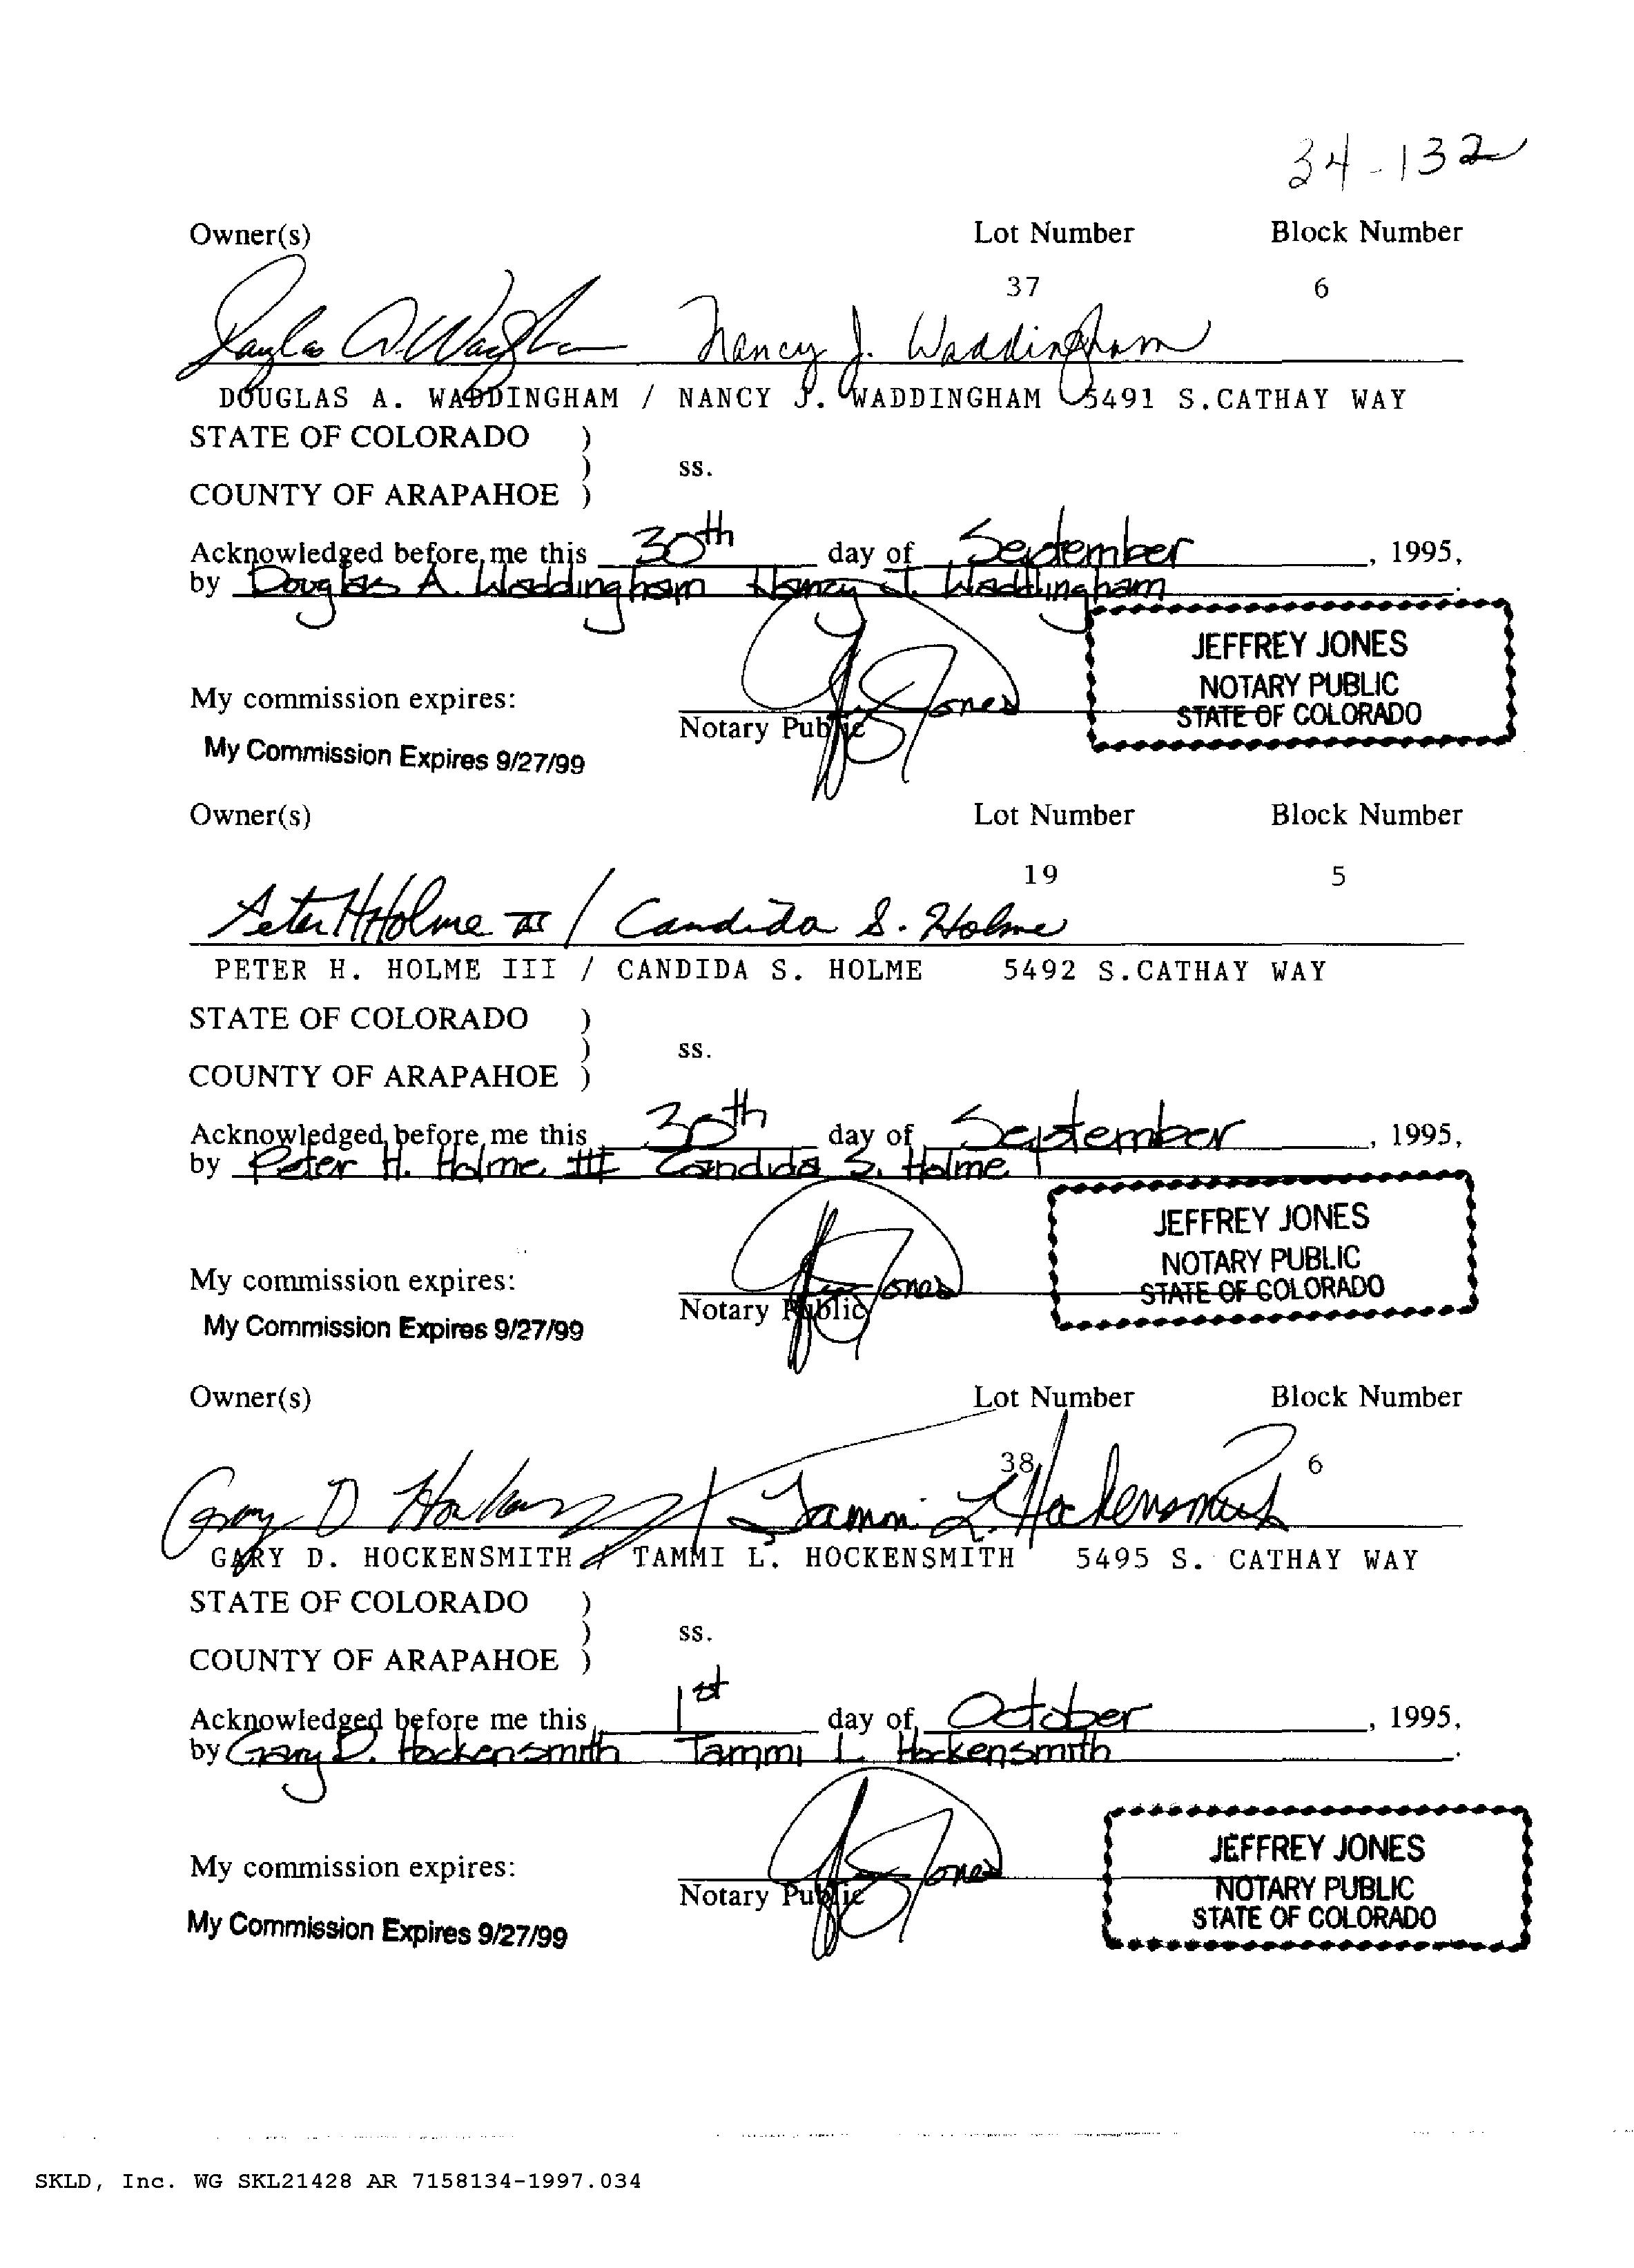 34-132
Owner(s) Lot Number Block Number
37 6
Douglas A. Waddingham Nancy J. Waddingham
DOUGLAS A. WADDINGHAM / NANCY J. WADDINGHAM 5491 S.CATHAY WAY
STATE OF COLORADO )
) ss.
COUNTY OF ARAPAHOE )
Acknowledged before me this 30th day of September, 1995,
by Douglas A. Waddingham Nancy J. Waddingham.
JEFFREY JONES
NOTARY PUBLIC
STATE OF COLORADO
My commission expires: Jones
Notary Public
My Commission Expires 9/27/99
Owner(s) Lot Number Block Number
19 5
Peter H Holme III / Candida S. Holme
PETER H. HOLME III / CANDIDA S. HOLME 5492 S.CATHAY WAY
STATE OF COLORADO )
) ss.
COUNTY OF ARAPAHOE )
Acknowledged before me this 30th day of September, 1995,
by Peter H. Holme III Candida S. Holme
JEFFREY JONES
NOTARY PUBLIC
STATE OF COLORADO
My commission expires: Jones
Notary Public
My Commission Expires 9/27/99
Owner(s) Lot Number Block Number
38 6
Gary D Hockensmith / Tammi L. Hockensmith
GARY D. HOCKENSMITH / TAMMI L. HOCKENSMITH 5495 S. CATHAY WAY
STATE OF COLORADO )
) ss.
COUNTY OF ARAPAHOE )
Acknowledged before me this 1st day of October, 1995,
by Gary D. Hockensmith Tammi L Hockensmith.
JEFFREY JONES
NOTARY PUBLIC
STATE OF COLORADO
My commission expires: Jones
Notary Public
My Commission Expires 9/27/99
SKLD, Inc. WG SKL21428 AR 7158134-1997.034